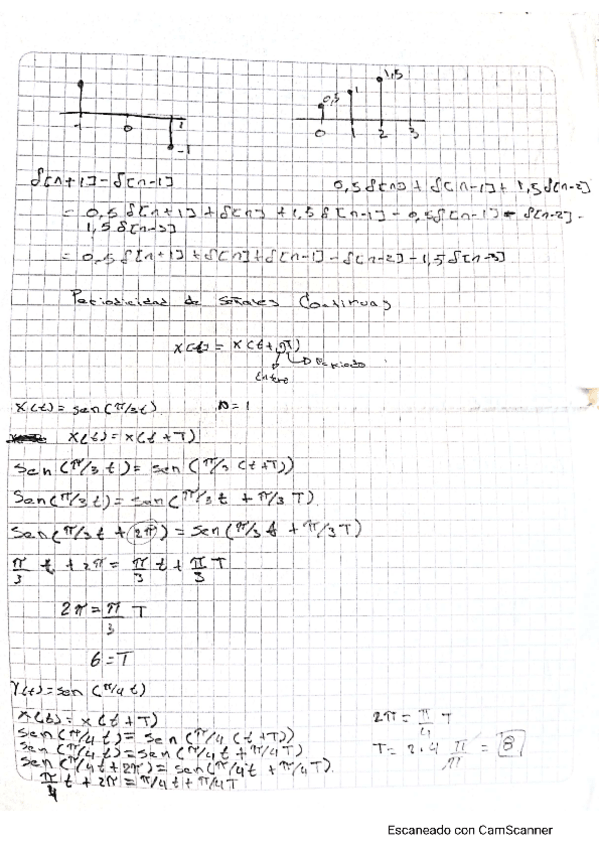 1,5
0,5 1
-1 0 1 0 1 2 3
-1
δ[n+1]-δ[n-1] 0,5δ[n]+δ[n-1]+1,5δ[n-2]
= 0,5δ[n+1]+δ[n]+1,5δ[n-1]-0,5δ[n-1]-δ[n-2]-
1,5δ[n-3]
= 0,5δ[n+1]+δ[n]+δ[n-1]-δ[n-2]-1,5δ[n-3]
Periodicidad de señales Continuas
x(t) = x(t+nT)
Periodo
Entero
x(t)=sen(π/3t) n=1
x(t)=x(t+T)
sen(π/3 t)= sen(π/3 (t+T))
sen(π/3 t)=sen(π/3 t + π/3 T)
sen(π/3 t + 2π) = sen(π/3 t + π/3 T)
π/3 t + 2π = π/3 t + π/3 T
2π = π/3 T
6 = T
Y(t)=sen(π/4 t)
x(t) = x(t+T)
sen(π/4 t) = sen(π/4 (t+T))
sen(π/4 t)=sen(π/4 t + π/4 T)
sen(π/4 t + 2π) = sen(π/4 t + π/4 T)
π/4 t + 2π = π/4 t + π/4 T
2π = π/4 T
T= 2·4 π/π = 8
Escaneado con CamScanner